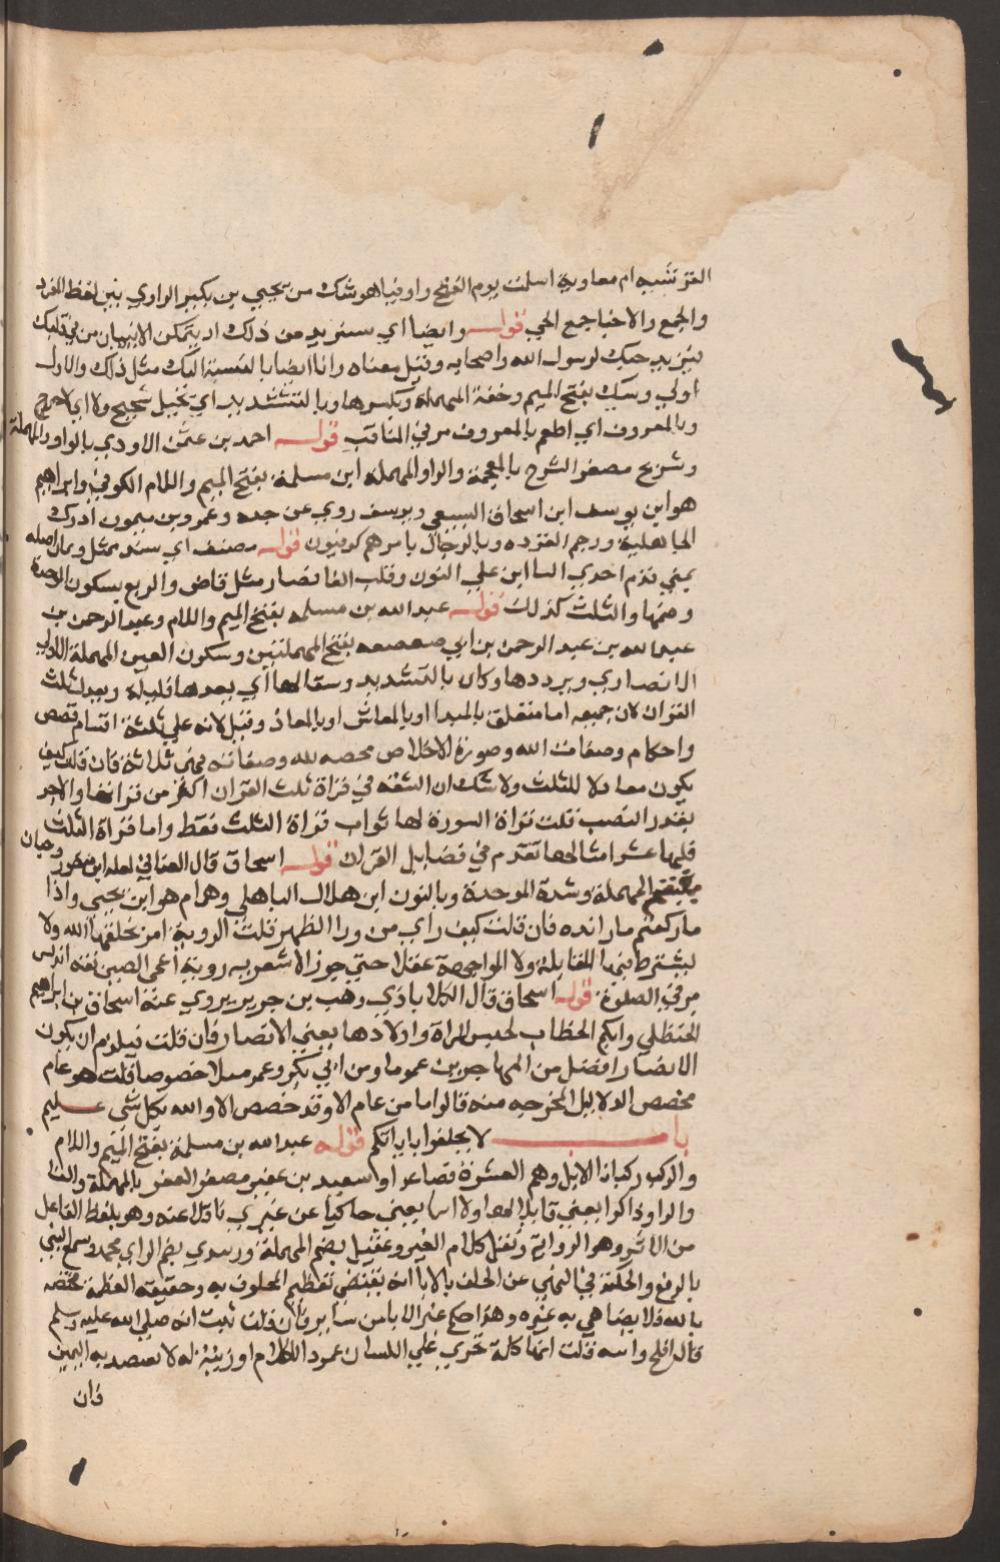 القرشية ام معاوية اسلمت يوم الفتح واو فيا هو شك من يحيى بن بكير الراوي بين لفظ المفرد
والجمع والاخبا جمع الحي قوله وايضا اي سنزيد من ذلك اد يتمكن الايمان من في قلبك
فيزيد حبك لرسول الله واصحابه وقيل معناه وانا ايضا بالنسبة اليك مثل ذلك والاول
اولي ومسيك بفتح الميم وخفة المهملة وبكسرها وبالتشديد اي بخيل شحيح ولا اي لا حرج
وبالمعروف اي اطعم بالمعروف مر في المناقب قوله احمد بن عثمن الاودي بالواو والمهملة
وشريح مصغر الشرح بالمعجمة والراو المهملة ابن مسلمة بفتح الميم واللام الكوفي وابراهيم
هو ابن يوسف ابن اسحاق السبيعي ويوسف روي عن جده وعمرو بن ميمون ادرك
الجاهلية ورجم القردة وبالرجال باسرهم كوفيون قوله مصنف اي سند ممثل ويمان اصله
يمني قدم احدي اليا ابن علي النون وقلب الفا فصار مثل قاض والربع بسكون الوحدة
وضمها والثلث كذلك قوله عبد الله بن مسلمه بفتح الميم واللام وعبد الرحمن بن
عبد الله بن عبد الرحمن بن ابي صعصعه بفتح المهملتين وسكون العين المهملة الاولي
الانصاري ويرددها وكان بالتشديد وسقالها اي يعدها قليلة ويعدل ثلث
القران لان جميعه اما متعلق بالمبدا او بالمعاش او بالمعاد وقيل لانه علي ثلثة اقسام قصص
واحكام وصفات الله وصورة الاخلاص محصه لله وصفاته فهي ثلاثه فان قلت كيف
يكون معادلا للثلث ولا شك ان المشقه في قراة ثلث القران اكثر من قراتها والاجر
بقدر النصب قلت قراة السورة لها ثواب قراة الثلث فقط واما قراة الثلث
فلها عشر امثالها تقدم في فضايل القران قوله اسحاق قال الغساني لعله ابن منصور وحبان
بفتح المهملة وشدة الموحدة وبالنون ابن هلال الباهلي وهمام هو ابن يحيى واذا
ما ركعتم ما زائده فان قلت كيف راي من ورا الظهر قلت الروية امر يخلقها الله ولا
يشترط فيها المقابلة ولا المواجهة عقلا حتي جوز الاشعريه روية اعمي الصين بقة اندلس
مر في الصلوة قوله اسحاق قال الكلاباذي وهب بن جرير يروي عنة اسحاق بن ابراهيم
الحنظلي وانكم الخطاب لجنس المراة واولادها يعني الانصار فان قلت فيلزم ان يكون
الانصار افضل من المهاجرين عموما ومن ابي بكر وعمر مثلا خصوصا قلت هو عام
مخصص الدلايل الخرجه منه قالوا ما من عام الا وقد خصص الا والله بكل شي عليم
باب لا يحلفوا بابائكم قوله عبد الله بن مسلمة بفتح الميم واللام
والركب ركبان الابل وهم العشرة فصاعدا وسعيد بن عفير مصغر العفر بالمهملة والفا
والرا وذاكرا يعني قايلا لها ولا اثرا يعني حاكيا عن غيري ناقلا عنه وهو بلفظ الفاعل
من الاثر وهو الرواية ونقل كلام الغير وعقيل بضم المهملة وزبيدي بضم الزاي محمد وسمع النبي
بالرفع والحكمة في النهي عن الحلف بالابا انه يقتضي تعظيم المحلوف به وحقيقة العظمة مختصه
بالله فلا يضاهي به غيره وهذا حكم غير الابا من ساير فان قلت ثبت انه صلي الله عليه وسلم
قال افلح وابيه قلت انها كلمة تجري علي اللسان عمود الكلام او زينة له لا يقصد به اليمين
فان